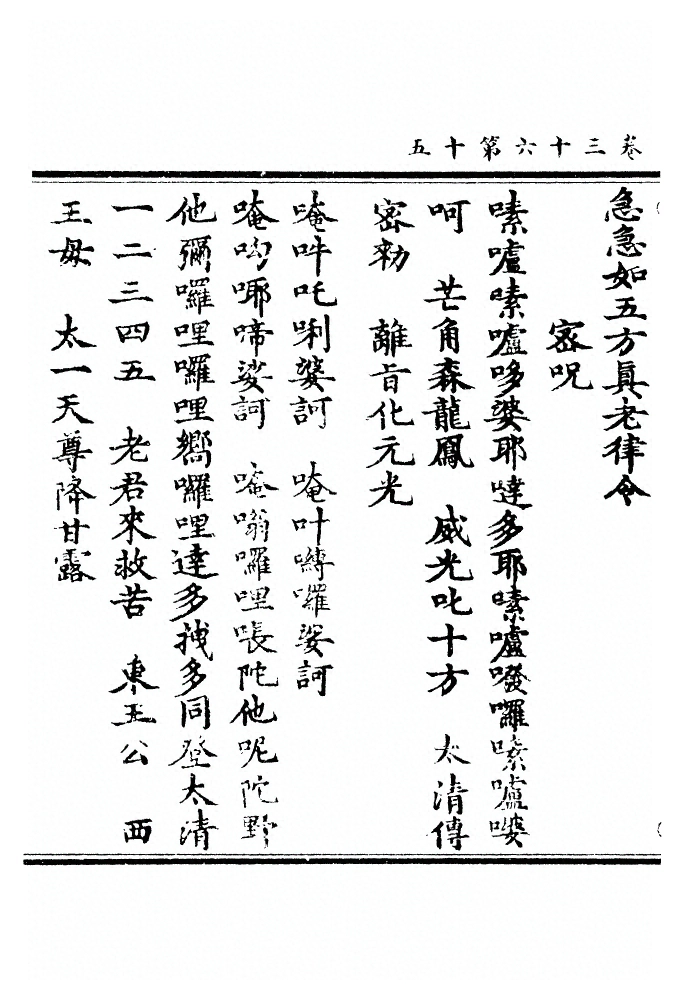 卷三十六第十五
急急如五方真老律令
密呪
嗉嚧嗉嚧哆婆耶噠多耶嗉嚧囉嗉嚧
呵 芒角森龍鳳 威光叱十方 太清傳
密勑 離旨化元光
唵吽吒唎婆訶 唵叶囀囉娑訶
唵呦哪啼娑訶 唵嗡囉哩哏陀他呢陀野
他彌囉哩囉哩嚮囉哩達多拽多同登太清
一二三四五 老君來救苦 東王公 西
王母 太一天尊降甘露